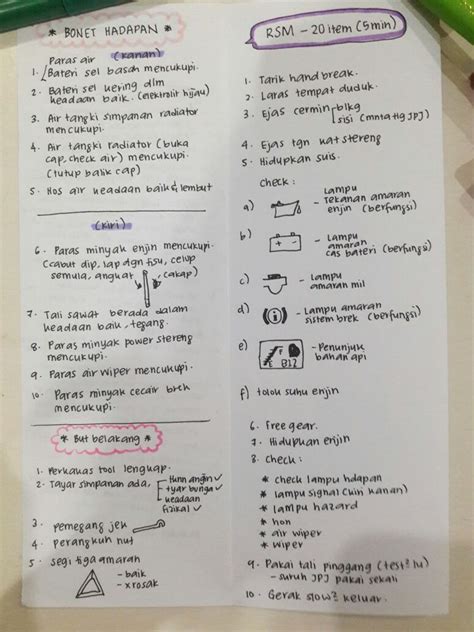 * BONET HADAPAN *
Paras air (kanan)
1. Bateri sel basah mencukupi.
2. Bateri sel kering dlm
keadaan baik. (elektrolit hijau)
3. Air tangki simpanan radiator
mencukupi.
4. Air tangki radiator (buka
cap, check air) mencukupi.
(tutup balik cap)
5. Hos air keadaan baik & lembut
(kiri)
6. Paras minyak enjin mencukupi.
(cabut dip, lap dgn tisu, celup
semula, angkat, cakap)
7. Tali sawat berada dalam
keadaan baik, tegang.
8. Paras minyak power stereng
mencukupi.
9. Paras air wiper mencukupi.
10. Paras minyak cecair brek
mencukupi.
* But belakang *
1. Perkakas tool lengkap.
2. Tayar simpanan ada,
- tknn angin ✓
- tyar bunga ✓
- keadaan
fizikal ✓
3. pemegang jek
4. perangkuh nut
5. segi tiga amaran
- baik
- x rosak
RSM - 20 item (5 min)
1. Tarik hand break.
2. Laras tempat duduk.
3. Ejas cermin
blkg
sisi (mnta tlg JPJ)
4. Ejas tgn kat stereng
5. Hidupkan suis.
check:
a) - Lampu
tekanan amaran
enjin (berfungsi)
b) - Lampu
amaran
cas bateri (berfungsi)
c) - Lampu
amaran mil
d) - Lampu amaran
sistem brek (berfungsi)
e) E F B12 - Penunjuk
bahan api
f) tolok suhu enjin
6. Free gear.
7. Hidupkan enjin
8. Check:
* check lampu hdapan
* lampu signal (kiri kanan)
* lampu hazard
* hon
* air wiper
* wiper
9. Pakai tali pinggang (test2 lu)
- suruh JPJ pakai sekali
10. Gerak slow2 keluar.